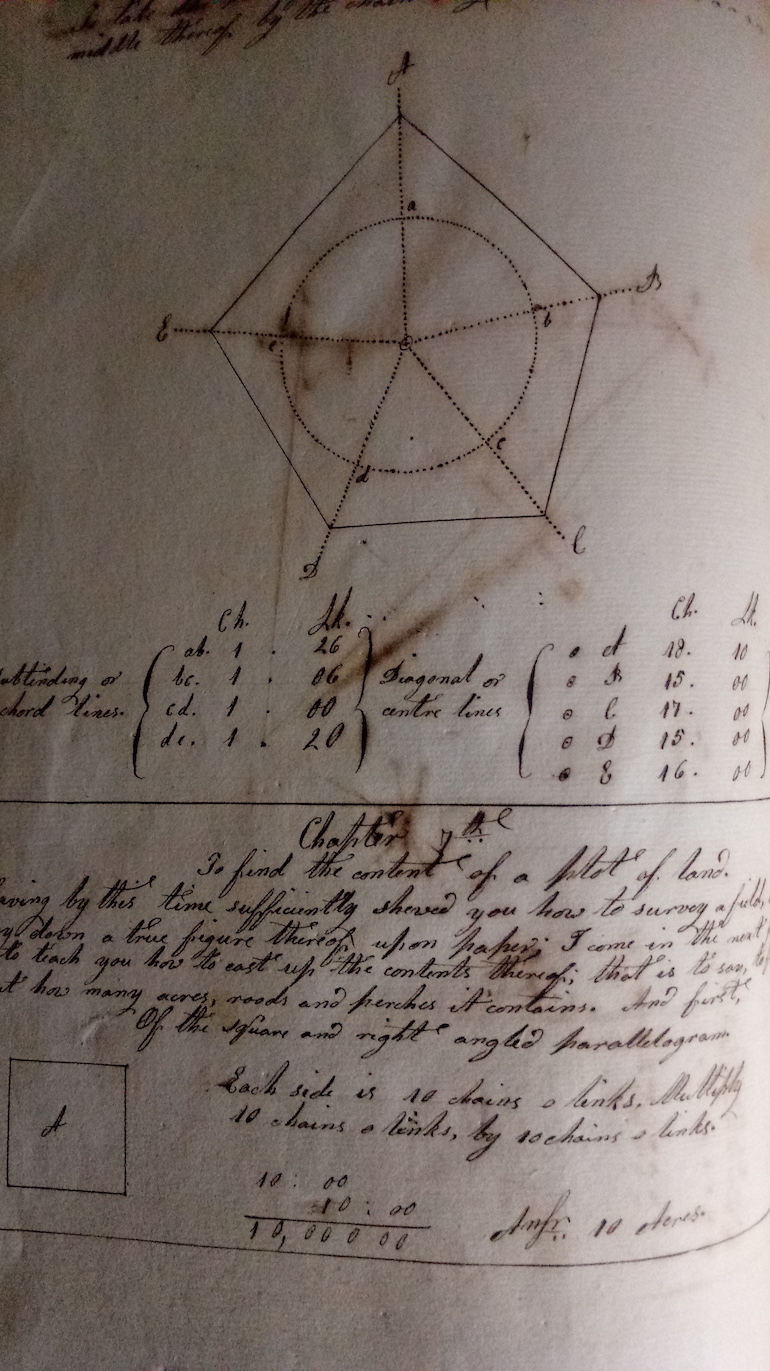 To take
middle thereof by the chain
A
a
B
b
E
e
c
d
D
C
Ch. Lk. Ch. Lk.
ab. 1 . 26 ⊙ A 18. 10
subtending or bc. 1 . 06 Diagonal or ⊙ B 15. 00
chord lines. cd. 1 . 00 centre lines ⊙ C 17. 00
de. 1 . 20 ⊙ D 15. 00
⊙ E 16. 00
Chapter 7th
To find the content of a plot of land.
aving by this time sufficiently shewed you how to survey a field,
y down a true figure thereof upon paper; I come in the next
to teach you how to cast up the contents thereof; that is to say, to
t how many acres, roods and perches it contains. And first,
Of the square and right angled parallelogram.
Each side is 10 chains 0 links. Multiply
A
10 chains 0 links, by 10 chains 0 links.
10 : 00
10 : 00
10,00000 Ansr. 10 Acres.